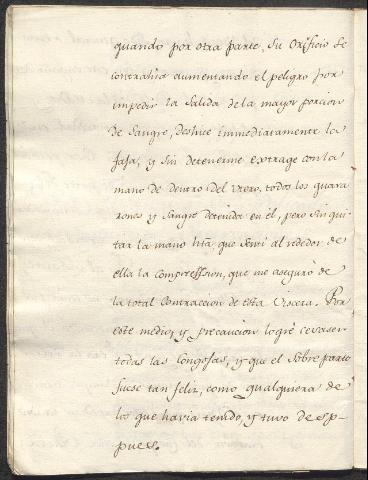 quando por otra parte, su Orificio se
contrahia aumentando el peligro por
impedir la Salida de la mayor porcion
de Sangre, deshice immediatamente la
faja, y sin detenerme extrage con la
mano de dentro del Utero, todos los
y Sangre detenida en él, pero sin qui-
tar la mano htã, que sentí al rededor de
ella la Compression, que me aseguró de
la total Contraccion de esta Viscera. Por
este medio, y precaucion logré cesasen
todas las Congojas, y que el Sobre parto
fuese tan feliz, como qualquiera de
los que havia tenido, y tuvo desp-
pues.